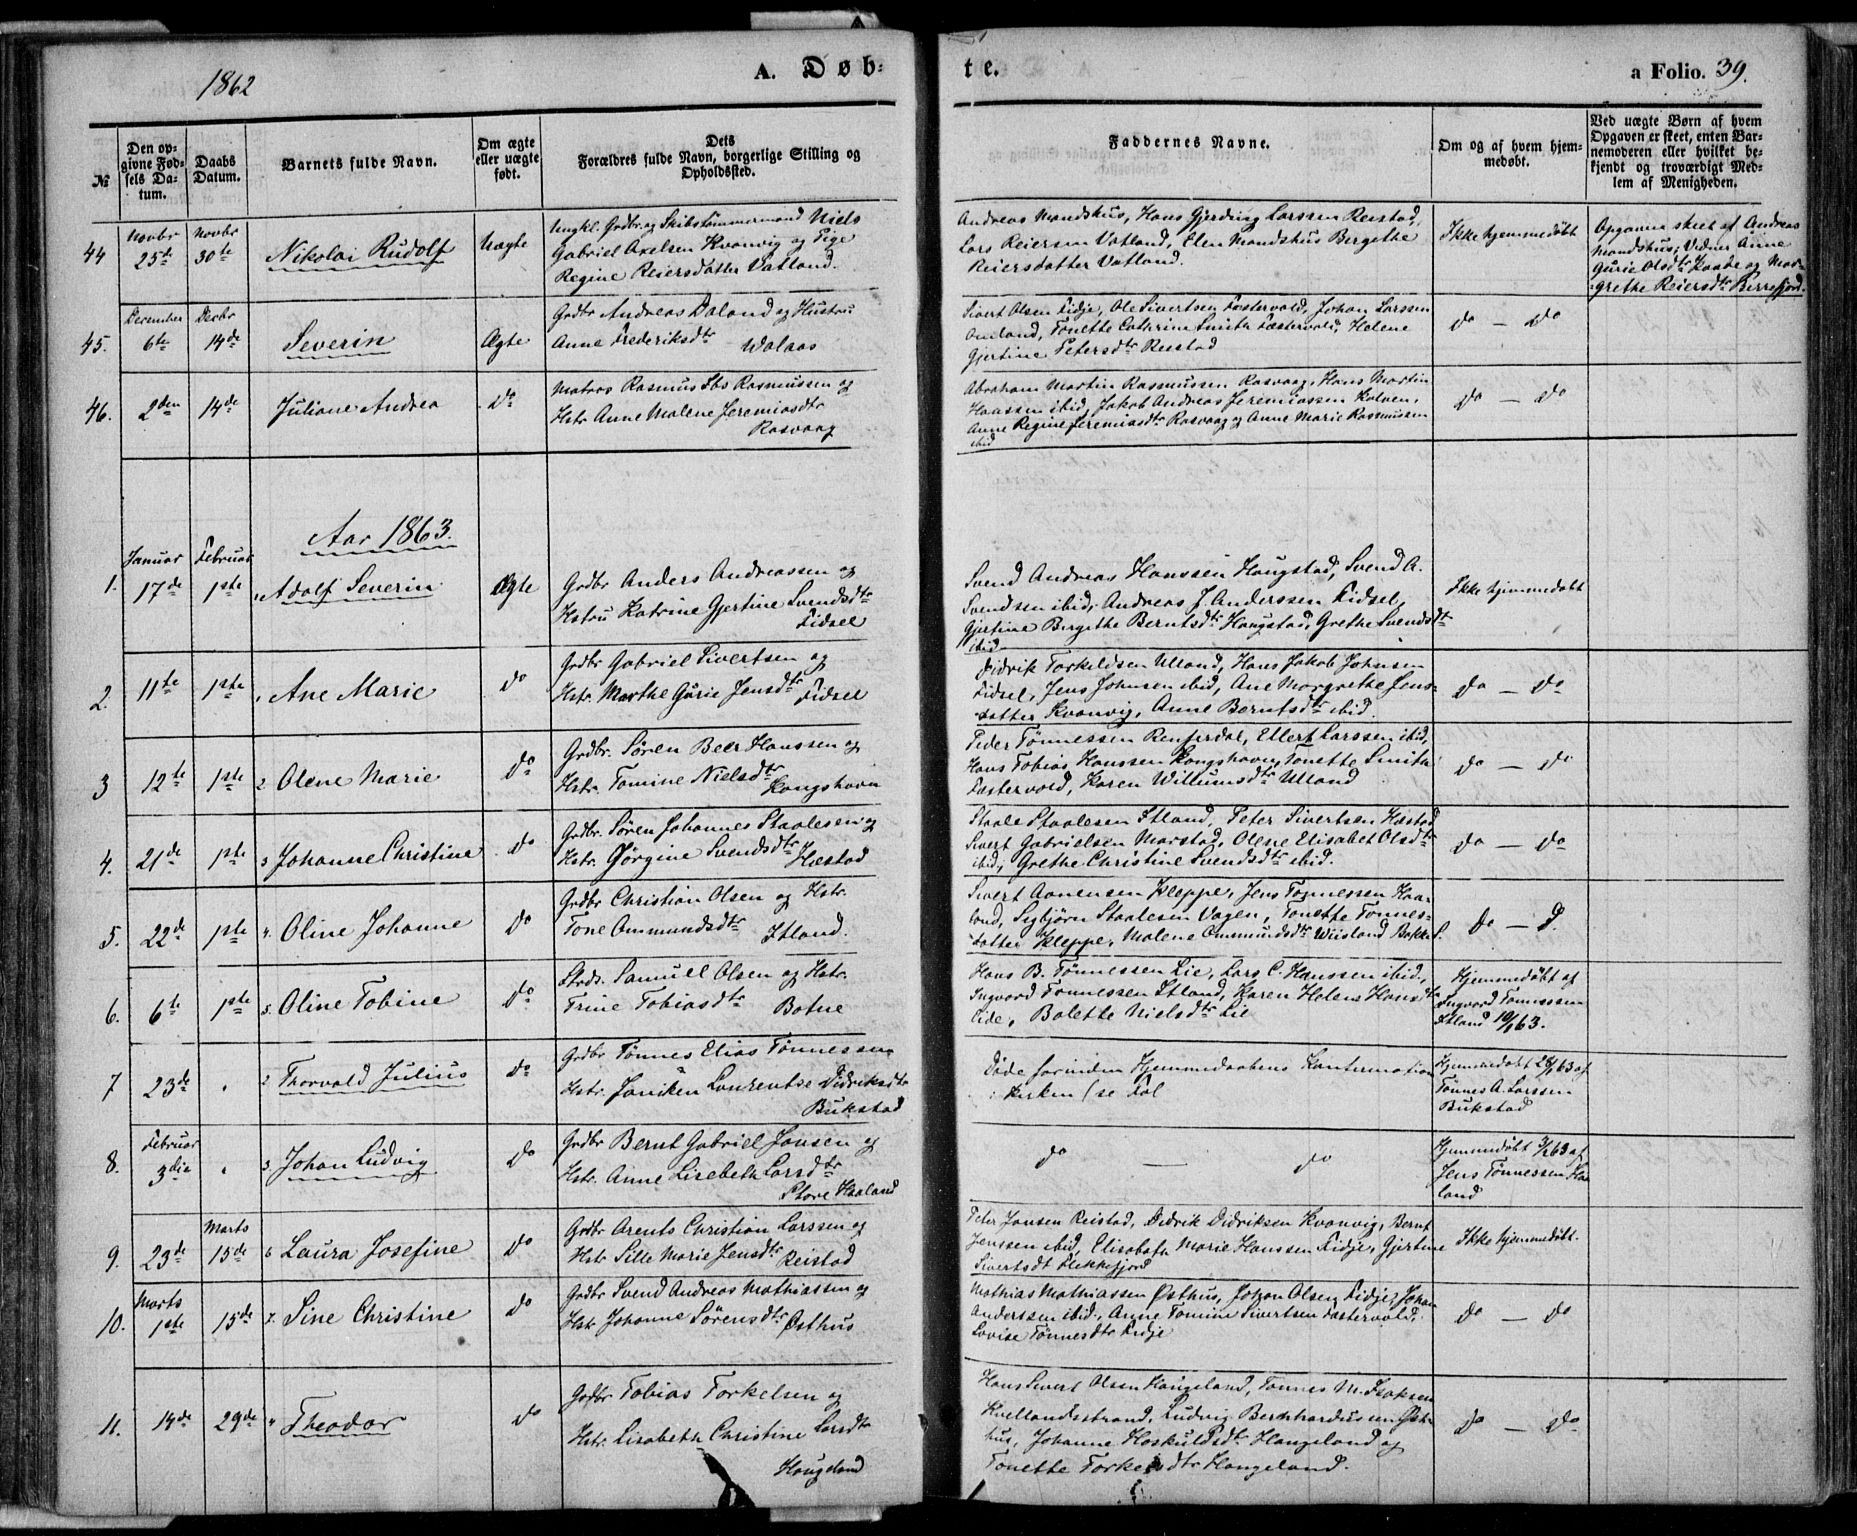 1862
A. Døb-
te.
a Folio. 39.
№
Den op-
givne Fød-
sels Da-
tum.
Daabs
Datum.
Barnets fulde Navn.
Om ægte
eller uægte
født.
Dets
Forældres fulde Navn, borgerlige Stilling og
Opholdssted.
Faddernes Navne.
Om og af hvem hjem-
medøbt.
Ved uægte Børn af hvem
Opgaven er skeet, enten Bar-
nemoderen eller hvilket be-
kjendt og troværdigt Med-
lem af Menigheden.
44
Novbr
25de
Novbr
30te
Nikolai Rudolf
Uægte
Ungkl. Grdbr. og Skibstømmermand Niels
Gabriel Axelsen Kvanvig og Pige
Regine Reiersdatter Vatland.
Andreas Mandshus, Hans Gjerding Larssen Reistad,
Lars Reiersen Vatland, Elen Mandshus Bergethe
Reiersdatter Vatland.
Ikke hjemmedøbt
Opgaven skeet af Andreas
Mandshus; Vidner Anne
Gurie Olsdtr Kaade og Mar-
grethe Reiersdtr Birrefjord.
45.
December
6te
Decbr
14de
Severin
Ægte
Grdbr Andreas Daland og Hustru
Anne Frederiksdtr Walaas
Sivert Olsen Fidje, Ole Sivertsen Fastervold, Johan Larssen
Omland, Tonette Cathrine Smith Fastervold, Helene
Gjertine Petersdtr Reistad
do — do
46.
2den
14de
Juliane Andrea
do
Matros Rasmus Ebs Rasmussen og
Hstr Anne Malene Jeremiasdtr
Rasvaag
Abraham Martin Rasmussen Rasvaag, Hans Martin
Haassen ibid, Jakob Andreas Jeremiassen Kalven,
Anne Regine Jeremiasdtr Rasvaag og Anne Marie Rasmussen
ibid
do — do
Aar 1863.
1.
Januar
17de
Februar
1ste
Adolf Severin
Ægte
Grdbr Anders Andreassen og
Hstru Katrine Gjertine Svendsdtr
Fidsel
Svend Andreas Hanssen Haugstad, Svend A.
Svendsen ibid, Andreas J. Anderssen Fidsel,
Gjertine Bergethe Berntsdtr Haugstad, Grethe Svendsdtr
ibid
Ikke hjemmedøbt
2.
11te
1ste
Ane Marie
do
Grdbr Gabriel Sivertsen og
Hstr. Marthe Gurie Jensdtr Fidsel
Didrik Torkeldsen Ulland, Hans Jakob Johnsen
Fidsel, Jens Johnsen ibid, Ane Margrethe Jens-
datter Kvanvig, Anne Berntsdtr ibid.
do — do
3
12te
1ste
2 Olene Marie
do
Grdbr. Søren Beer Hanssen og
Hstr. Tomine Nielsdtr
Kongshavn
Peder Tønnessen Rensferdal, Ellert Larssen ibid,
Hans Tobias Hanssen Kongshavn, Tonette Smith
Fastervold, Karen Willumsdtr Ulland
do — do
4.
21de
1ste
3 Johanne Christine
do
Grdbr. Søren Johannes Staalesen og
Hstr. Jørgine Svendsdtr Hæstad
Staale Staalesen Itland, Peter Sivertsen Hæstad
Sivert Gabrielsen Marstad, Olene Elisabet Olsdtr
ibid, Grethe Christine Svendsdtr ibid.
do — do
5.
22de
1ste
4. Oline Johanne
do
Grdbr Christian Olsen og Hstr.
Tone Ommundsdtr Itland.
Sivert Aanensen Kleppe, Jens Tønnessen Haa-
land, Sigbjörn Staalesen Vagen, Tonette Tønnes-
datter Kleppe, Malene Ommundsdtr Wiisland Bakke S.
do — d.
6.
6te
1ste
5. Oline Tobine
do
Strds. Samuel Olsen og Hstr.
Trine Tobiasdtr Botne
Hans B. Tönnessen Lie, Lars C. Hanssen ibid.,
Ingvard Tonnessen Itland, Karen Helene Hansdtr
Eide, Bolette Nielsdtr Lie
Hjemmedøbt af
Ingvard Tonnessen
Itland 10/1 63.
7
23de
2 Thorvald Julius
do
Grdbr Tönnes Elias Tönnessen
Hstr. Janiken Laurentse Didriksdtr
Bukstad
Døde forinden Hjemmedaabens Konfirmation
i Kirken (se Fol
Hjemmedøbt 24/1 63 af
Tönnes A. Larssen
Bukstad
8.
Februar
3die
3. Johan Ludvig
do
Grdbr Bernt Gabriel Jansen og
Hstr. Anne Lisebeth Larsdtr
Store Haaland
do — do
Hjemmedøbt 3/2 63 af
Jens Tønnessen Haa
land
9.
23de
Marts
15de
6 Laura Josefine
do
Grdbr Arents Christian Larssen og
Hstr Sille Marie Jensdtr Reistad
Peter Jansen Reistad, Didrik Didriksen Kvanvig, Bernt
Jenssen ibid, Elisabeth Marie Hanssen Fidje, Gjertine
Sivertsdt Flekkefjord
Ikke hjemmedøbt.
10.
Marts
1ste
15de
7. Sine Christine
do
Grdbr Svend Andreas Mathiassen og
Hstr Johanne Sørensdtr Østhus
Mathias Mathiassen Østhus, Johan Olsen Fidje, Johan
Anderssen ibid., Anne Tomine Sivertsen Fastervold,
Lovise Tønnesdtr Fidje
do — do
11.
14de
29de
4 Theodor
do
Grdbr Tobias Torkelsen og
Hstr. Lisabeth Christine Larsdtr
Haugeland
Hans Sivert Olsen Haugeland, Tønnes M. Isaksen
Kvellandsstrand, Ludvig Bernhardus Øst-
hus, Johanne Haskuldsdtr Haugeland og
Tonette Torkelsdtr Haugeland.
do — do